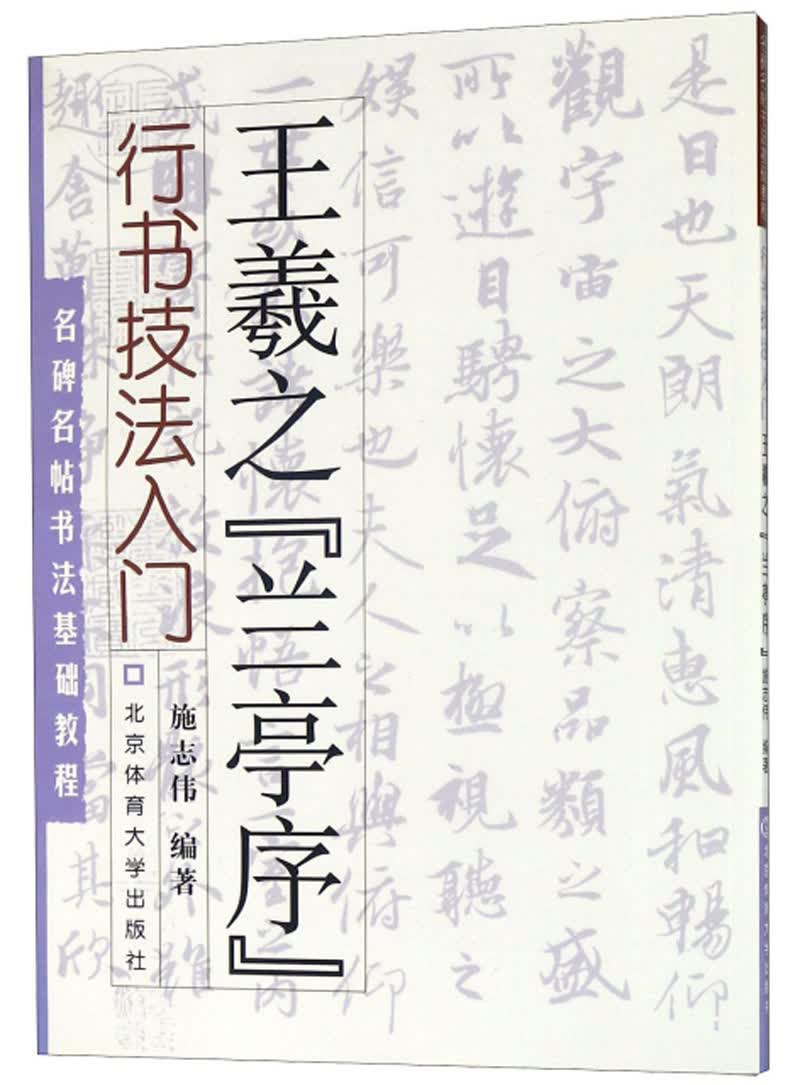 王羲之『兰亭序』
行书技法入门
施志伟 编著
北京体育大学出版社
名碑名帖书法基础教程
是日也天朗氣清惠風和暢仰
觀宇宙之大俯察品類之盛
所以遊目騁懷足以極視聽之
娱信可樂也夫人之相與俯仰
王羲之『兰亭序』
施志伟 编著